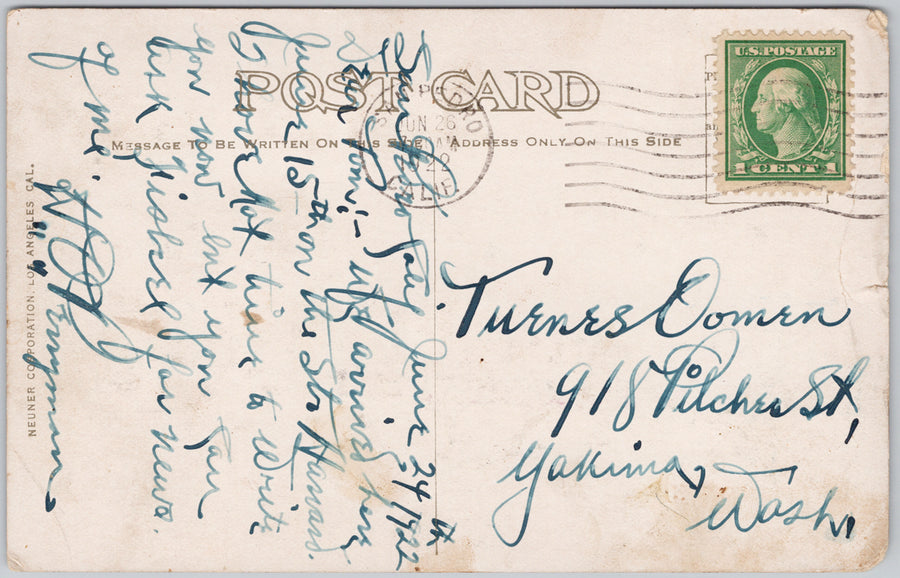 POST CARD
MESSAGE TO BE WRITTEN ON THIS SIDE
ADDRESS ONLY ON THIS SIDE
U.S. POSTAGE
1 CENT 1
PEDRO
JUN 26
CALIF.
San Pedro Calif June 24th 1922
Dear Tom; - We arrived here
June 15th on the Str Hawaii.
I have not time to write
you now but you can
ask Gisbert for news.
of me.
Turnes Oomen
918 Pilcher St,
Yakima,
Wash.
NEUNER CORPORATION. LOS ANGELES CAL.